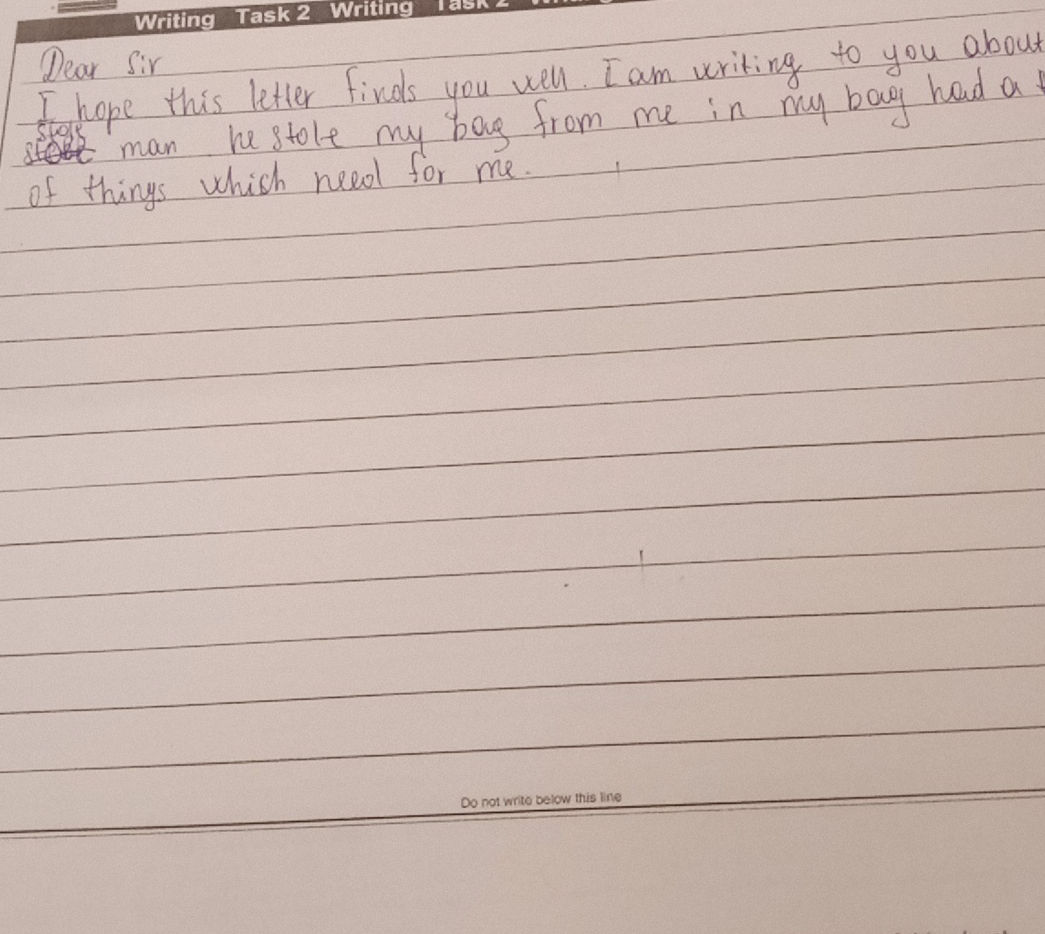 Writing Task 2 Writing Task 2
Dear Sir
I hope this letter finds you well. I am writing to you about
man he stole my bag from me in my bag had a
of things which need for me.
Do not write below this line